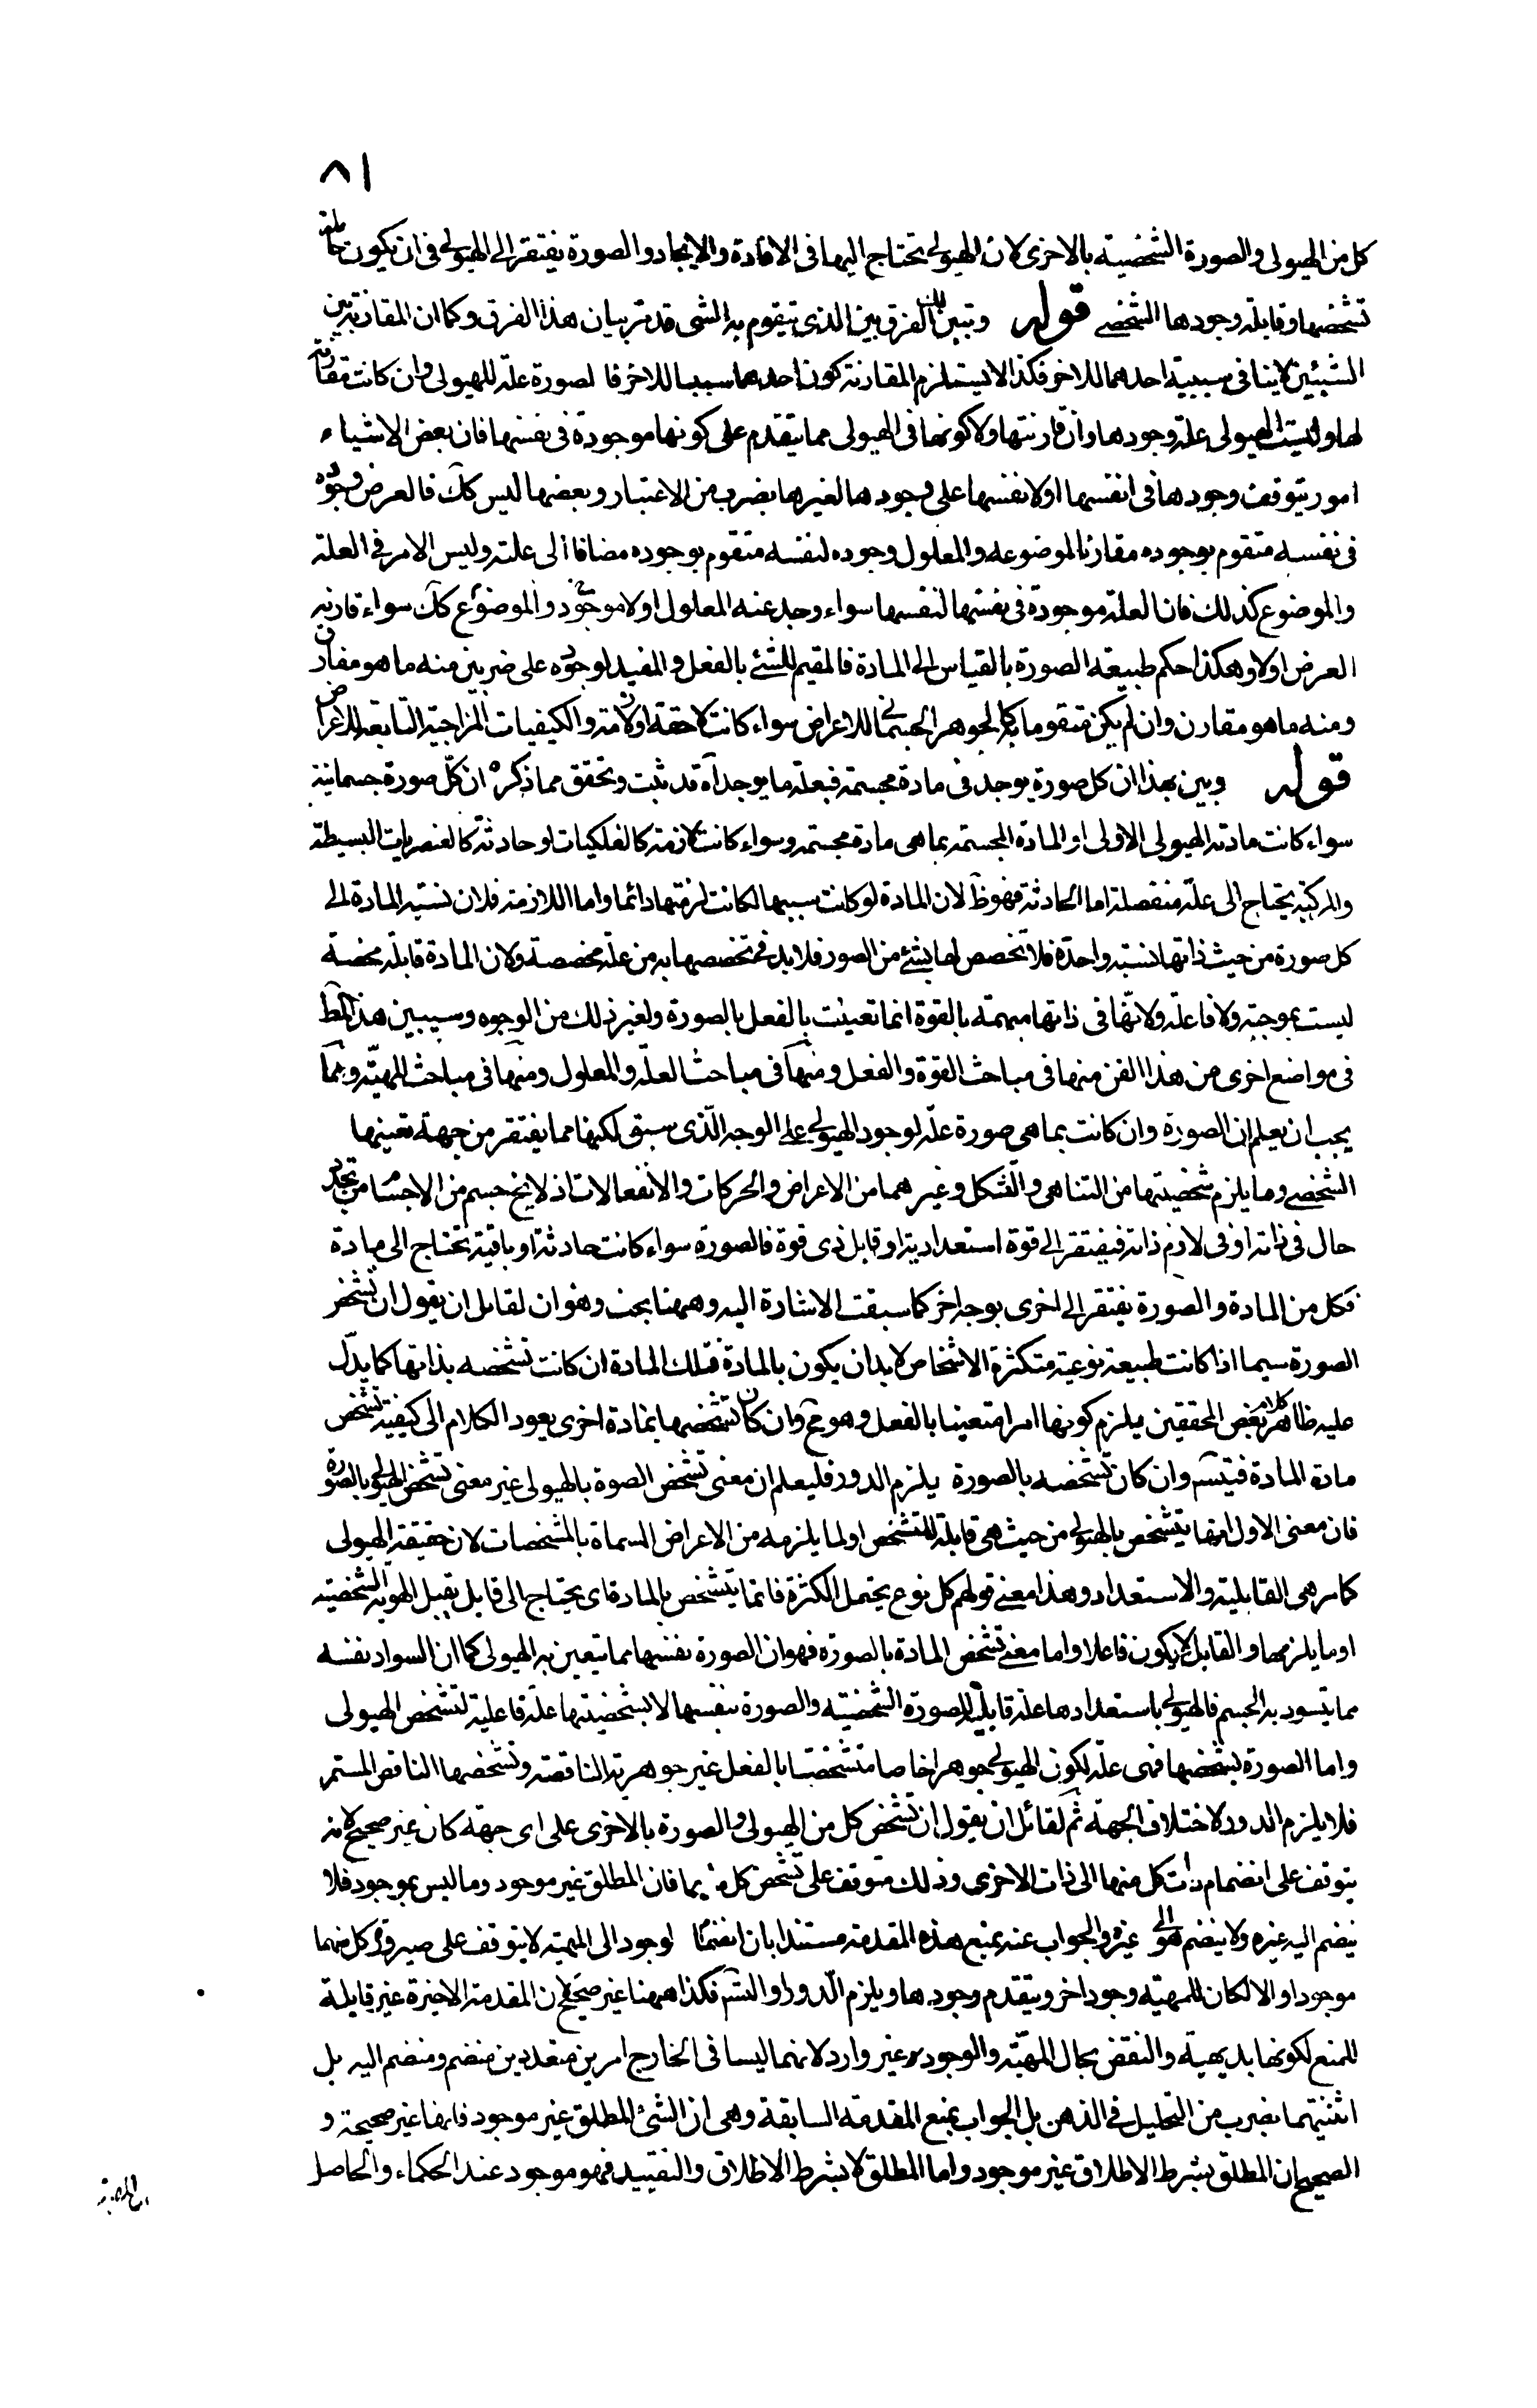 ٨١
كل من الهيولى والصورة الشخصية بالاخرى لان الهيولى تحتاج اليها فى الافادة والايجاد والصورة يفتقر الى الهيولى فى ان يكون حاملة
تشخصها وقابلة وجودها الشخصى قوله وتبين لك الفرق بين الذى يتقوم به الشى قد مر بيان هذا الفرق وكما ان المقارنة بين
الشيئين لا ينافى سببية احدهما للاخر فكذا لا يستلزم المقارنة كون احدهما سببا للاخر فا لصورة علة للهيولى وان كانت مقارنة
لها وليست الهيولى علة وجودها وان قارنتها ولا كونها فى الهيولى مما يتقدم على كونها موجودة فى نفسها فان بعض الاشياء
امور يتوقف وجودها فى انفسها اولا نفسها على وجودها لغيرها بضرب من الاعتبار وبعضها ليس كك فالعرض وجوده
فى نفسه متقوم بوجوده مقارنا لموضوعه والمعلول وجوده لنفسه متقوم بوجوده مضافا الى علته وليس الامر فى العلة
والموضوع كذلك فان العلة موجودة فى نفسها لنفسها سواء وجد عنه المعلول اولا موجود والموضوع كك سواء قارنه
العرض اولا وهكذا حكم طبيعة الصورة بالقياس الى المادة فالمقيم للشئ بالفعل والمفيد لوجوده على ضربين منه ما هو مفارق
ومنه ما هو مقارن وان لم يكن متقوما به كالجوهر الجسمانى للاعراض سواء كانت لاحقة او لازمة والكيفيات المزاجية التابعة للاعراض
قوله وبين بهذا ان كل صورة يوجد فى مادة مجسمة فبعلة ما يوجد آه قد ثبت وتحقق مما ذكره ان كل صورة جسمانية
سواء كانت مادته الهيولى الاولى او المادة المجسمة بما هى مادة مجسمة وسواء كانت لازمة كالفلكيات او حادثة كالعنصريات البسيطة
والمركبة يحتاج الى علة منفصلة اما الحادثة فهو ظ لان المادة لو كانت سببها لكانت لزمتها دائما واما اللازمة فلان نسبة المادة الى
كل صورة من حيث ذاتها نسبة واحدة فلا تخصص لها بشئ من الصور فلا بد فى تخصصها به من علة مخصصة ولان المادة قابلة محضة
ليست بموجبة ولا فاعلة ولانها فى ذاتها مبهمة بالقوة انما تعينت بالفعل بالصورة ولغير ذلك من الوجوه وسيبين هذا المط
فى مواضع اخرى من هذا الفن منها فى مباحث القوة والفعل ومنها فى مباحث العلة والمعلول ومنها فى مباحث المهية ومما
يجب ان يعلم ان الصورة وان كانت بما هى صورة علة لوجود الهيولى على الوجه الذى سبق لكنها مما يفتقر من جهة تعينها
الشخصى وما يلزم شخصيتها من التناهى والتشكل وغيرهما من الاعراض والحركات والانفعالات اذ لا يخ جسم من الاجسام من تجدد
حال فى ذاته او فى لازم ذاته فيفتقر الى قوة استعدادية او قابل ذى قوة فالصورة سواء كانت حادثة او باقية تحتاج الى مادة
فكل من المادة والصورة يفتقر الى اخرى بوجه اخر كما سبقت الاشارة اليه وههنا بحث وهو ان لقائل ان يقول ان تشخص
الصورة سيما اذا كانت طبيعة نوعية متكثرة الاشخاص لا بد ان يكون بالمادة فتلك المادة ان كانت تشخصه بذاتها كما يدل
عليه ظاهر كلام بعض المحققين يلزم كونها امرا متعينا بالفعل وهو مح وان كان تشخصها بمادة اخرى يعود الكلام الى كيفية تشخص
مادة المادة فيتسلسل وان كان تشخصه بالصورة يلزم الدور فليعلم ان معنى تشخص الصوة بالهيولى غير معنى تشخص الهيولى بالصورة
فان معنى الاول انها يتشخص بالهيولى من حيث هى قابلة للتشخص او لما يلزمه من الاعراض المسماة بالمشخصات لان حقيقة الهيولى
كما مر هى القابلية والاستعداد وهذا معنى قولهم كل نوع يحتمل الكثرة فانما يتشخص بالمادة اى يحتاج الى قابل يقبل الهوية الشخصية
او ما يلزمها والقابل لا يكون فاعلا واما معنى تشخص المادة بالصورة فهو ان الصورة نفسها مما يتعين به الهيولى كما ان السواد نفسه
مما يتسود به الجسم فالهيولى باستعدادها علة قابلية للصورة الشخصية والصورة بنفسها لا بشخصيتها علة فاعلية لتشخص الهيولى
واما الصورة بشخصها فهى علة لكون الهيولى جوهرا خاصا متشخصا بالفعل غير جوهريته الناقصة وتشخصها الناقص المستمر
فلا يلزم الدور لاختلاف الجهة ثم لقائل ان يقول ان تشخص كل من الهيولى والصورة بالاخرى على اى جهة كان غير صحيح لانه
يتوقف على انضمام ذات كل منها الى ذات الاخرى وذلك متوقف على تشخص كل منهما فان المطلق غير موجود وما ليس بموجود فلا
ينضم اليه غيره ولا ينضم هو الى غيره والجواب عنه بمنع هذه المقدمة مستندا بان انضمام الوجود الى المهية لا يتوقف على صيرورة كل منهما
موجودا والا لكان للمهية وجود اخر ويتقدم وجودها ويلزم الدور او التسلسل فكذا ههنا غير صحيح لان المقدمة الاخيرة غير قابلة
للمنع لكونها بديهية والنقض بحال المهية والوجود غير وارد لانهما ليسا فى الخارج امرين متعددين منضم ومنضم اليه بل
اثنيتهما بضرب من التحليل فى الذهن بل الجواب بمنع المقدمة السابقة وهى ان الشئ المطلق غير موجود فانها غير صحيحة و
الصحيح ان المطلق بشرط الاطلاق غير موجود واما المطلق لا بشرط الاطلاق والتقييد فهو موجود عند الحكماء والحاصل